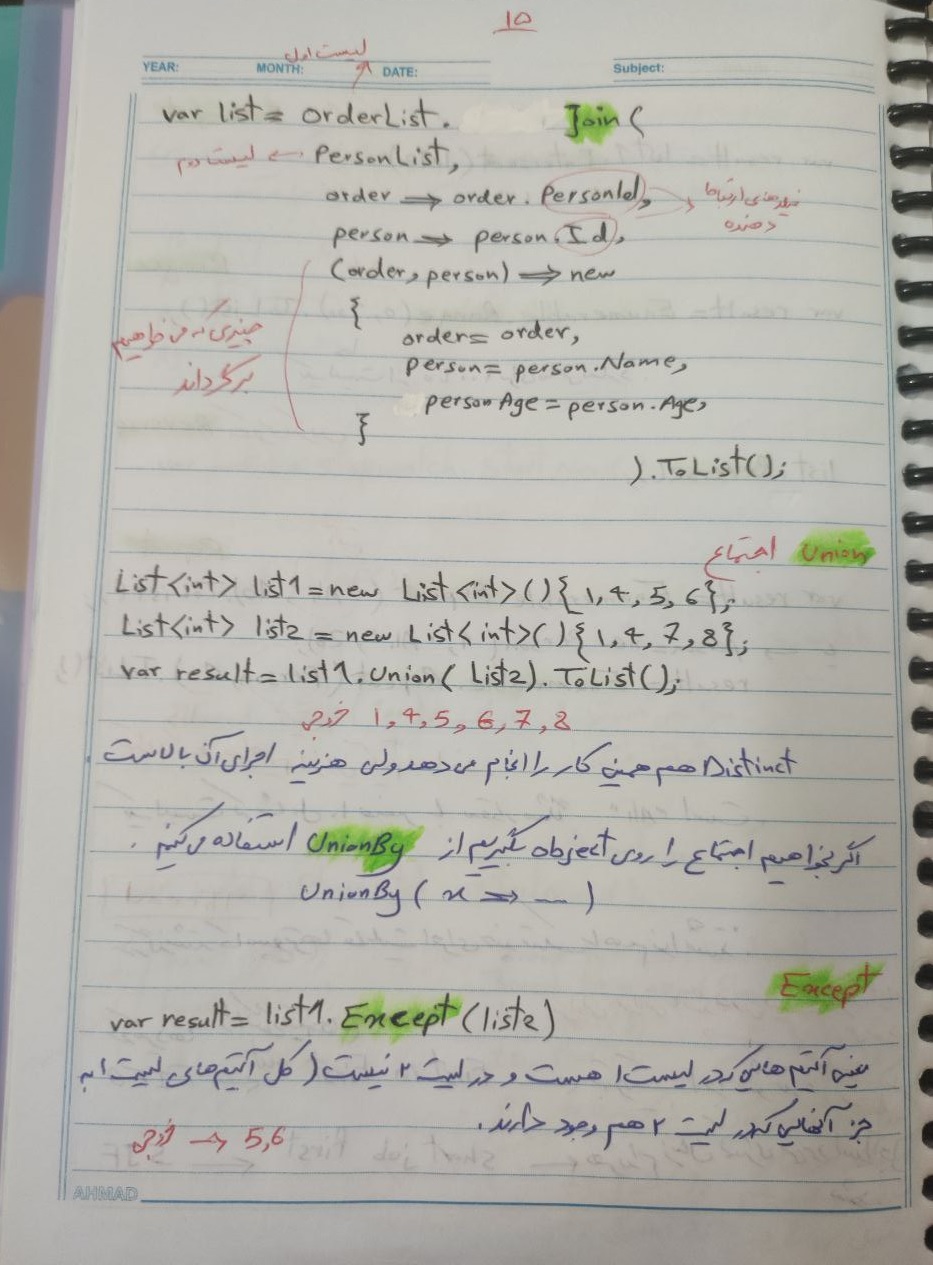 10
YEAR: MONTH: DATE: Subject:
لیست اول
var list = orderList. Join (
PersonList, ← لیست دوم
order ⇒ order. PersonId,
person ⇒ person. Id,
دهنده
(order, person) ⇒ new
{
order = order,
person = person.Name,
personAge = person.Age,
}
چیزی که می خواهیم
برگرداند
). ToList();
Union اجتماع
List<int> list1 = new List<int>(){1, 4, 5, 6};
List<int> list2 = new List<int>(){1, 4, 7, 8};
var result = list1. Union( List2). ToList();
خروجی 1, 4, 5, 6, 7, 8
Distinct هم همین کار را انجام می دهد ولی هزینه اجرای آن بالاست.
اگر بخواهیم اجتماع را روی object بگیریم از UnionBy استفاده می کنیم.
UnionBy ( x ⇒ ... )
Except
var result = list1. Except (list2)
یعنی آیتم هایی که در لیست ۱ هست و در لیست ۲ نیست ( کل آیتم های لیست ۱ به
جز آنهایی که در لیست ۲ هم وجود دارند.
خروجی → 5,6
AHMAD